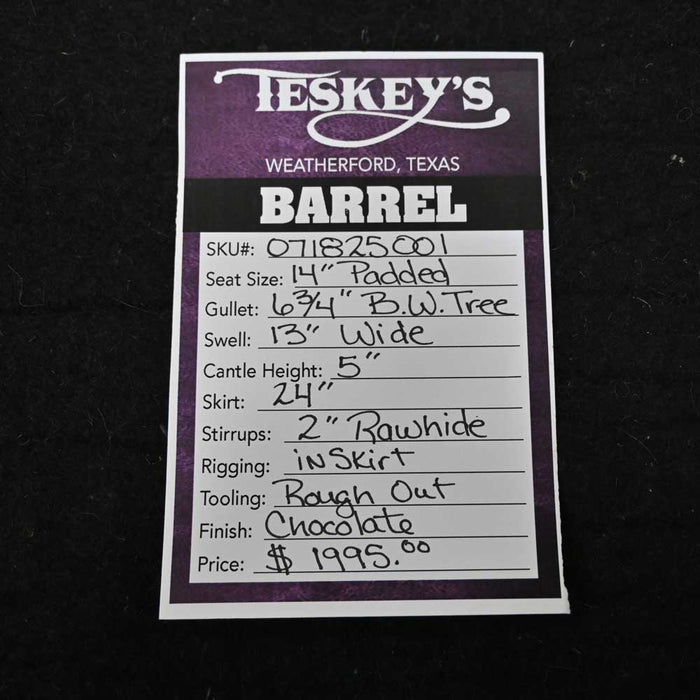 TESKEY'S
WEATHERFORD, TEXAS
BARREL
SKU#: 071825001
Seat Size: 14" Padded
Gullet: 6 3/4" B.W. Tree
Swell: 13" Wide
Cantle Height: 5"
Skirt: 24"
Stirrups: 2" Rawhide
Rigging: in Skirt
Tooling: Rough Out
Finish: Chocolate
Price: $ 1995.00